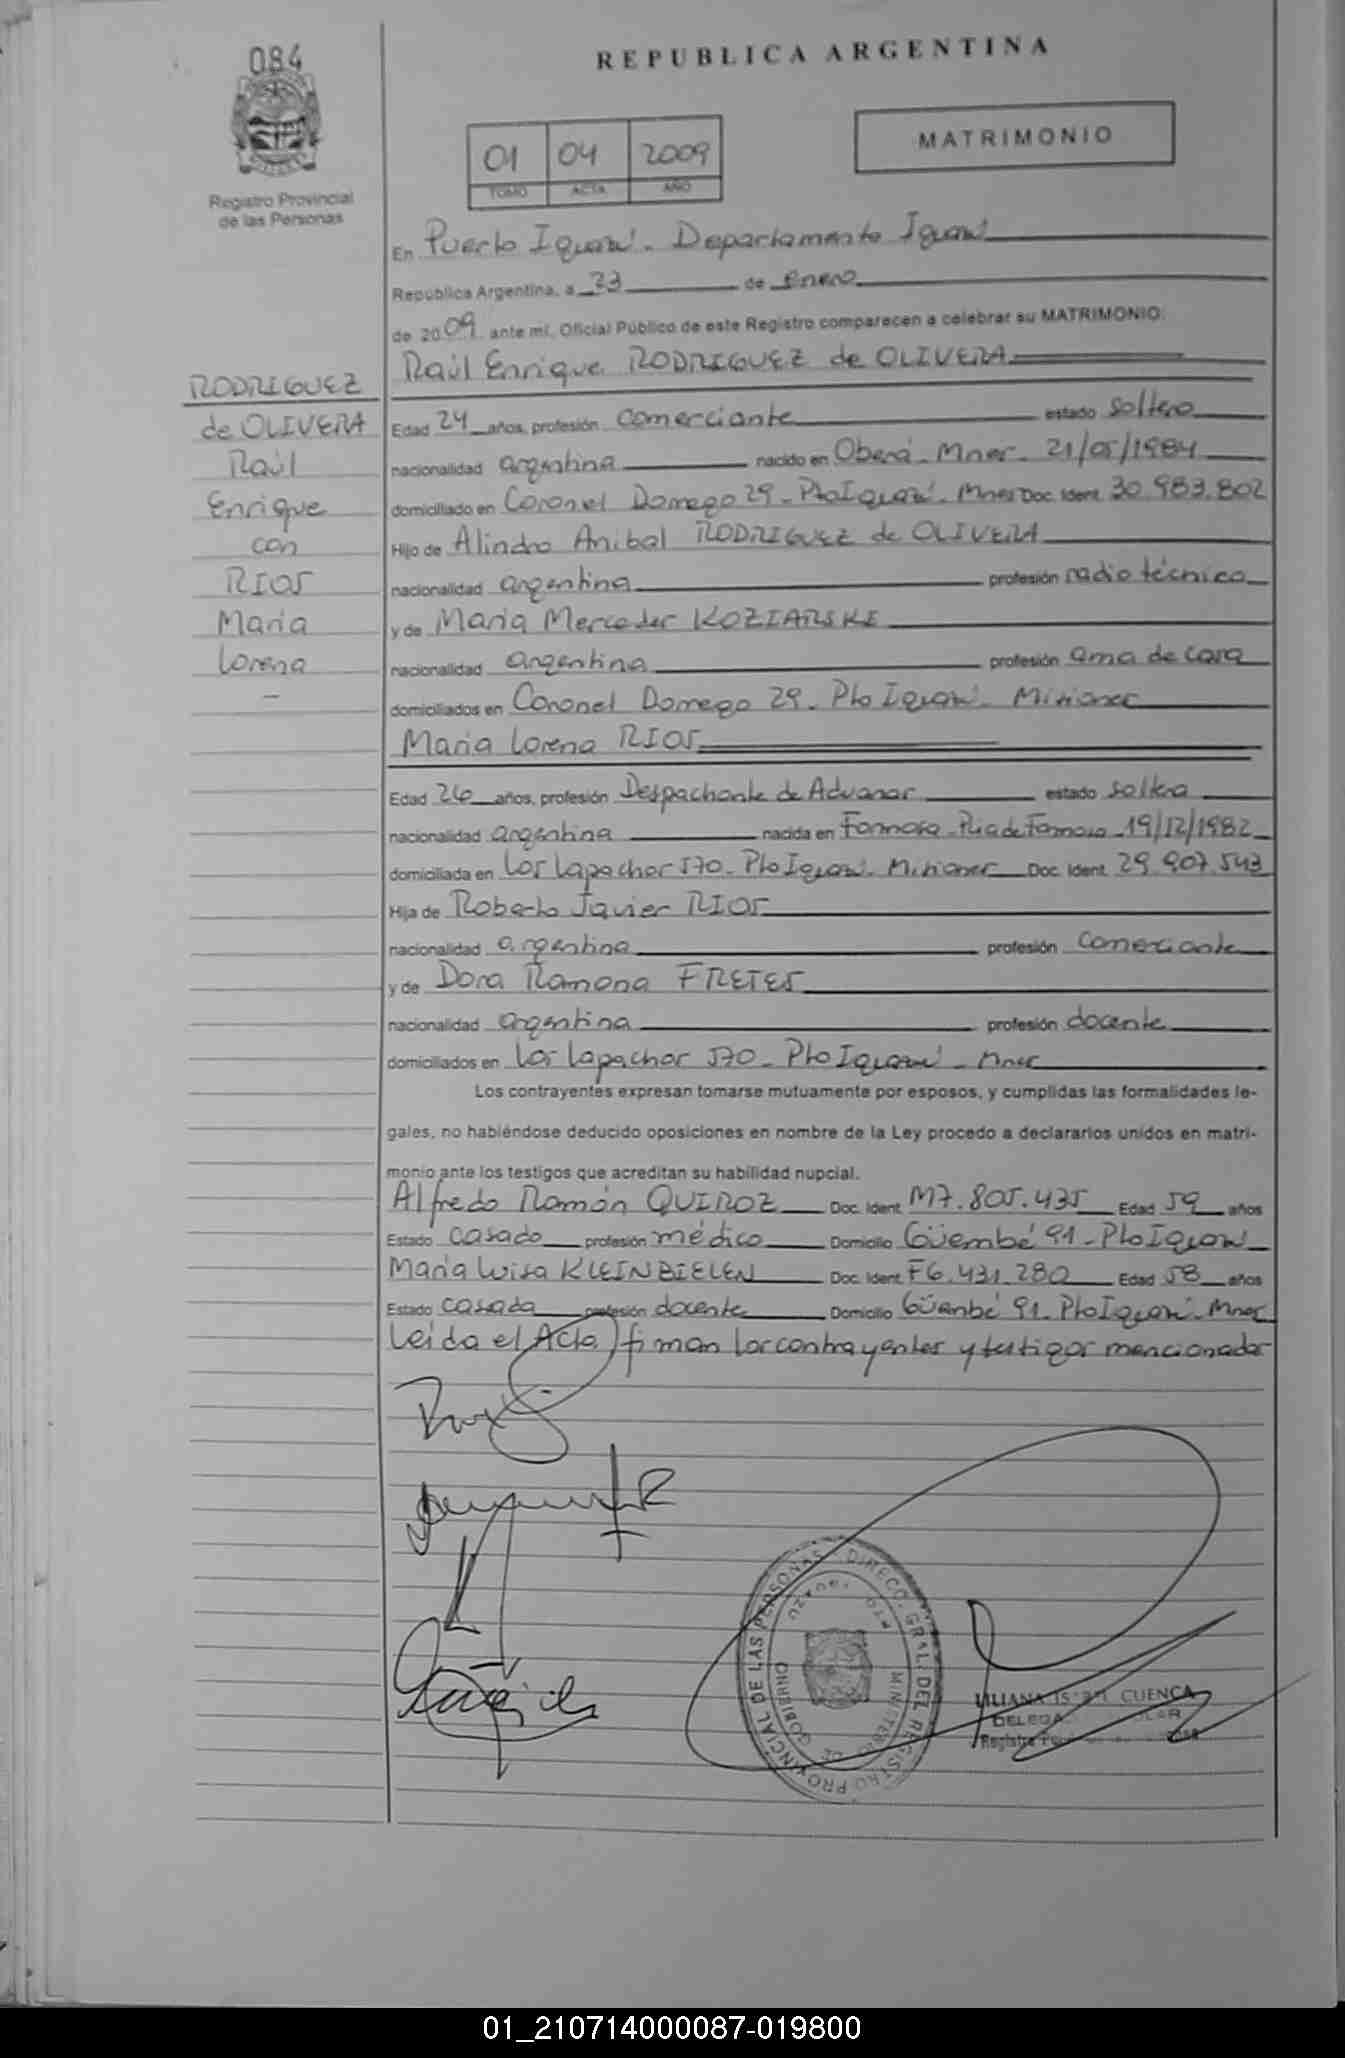 084
REPUBLICA ARGENTINA
Registro Provincial
de las Personas
01 04 2009
TOMO ACTA AÑO
MATRIMONIO
En Puerto Iguazú - Departamento Iguazú
República Argentina, a 23 de enero
de 2009 ante mí, Oficial Público de este Registro comparecen a celebrar su MATRIMONIO:
Raúl Enrique RODRIGUEZ de OLIVERA
RODRIGUEZ
de OLIVERA
Raúl
Enrique
con
RIOS
María
Lorena
-
Edad 24 años, profesión comerciante estado soltero
nacionalidad argentina nacido en Oberá - Mnes - 21/05/1984
domiciliado en Coronel Dorrego 29 - Pto Iguazú - Mnes Doc. Ident. 30.983.802
Hijo de Alindro Anibal RODRIGUEZ de OLIVERA
nacionalidad argentina profesión radio técnico
y de María Mercedes KOZIARSKI
nacionalidad argentina profesión ama de casa
domiciliados en Coronel Dorrego 29 - Pto Iguazú - Misiones
María Lorena RIOS
Edad 26 años, profesión Despachante de Aduanas estado soltera
nacionalidad argentina nacida en Formosa - Pcia de Formosa - 19/12/1982
domiciliada en Los Lapachos 570 - Pto Iguazú - Misiones Doc. Ident. 29.907.543
Hija de Roberto Javier RIOS
nacionalidad argentina profesión comerciante
y de Dora Ramona FRETES
nacionalidad argentina profesión docente
domiciliados en Los Lapachos 570 - Pto Iguazú - Mnes
Los contrayentes expresan tomarse mutuamente por esposos, y cumplidas las formalidades le-
gales, no habiéndose deducido oposiciones en nombre de la Ley procedo a declararlos unidos en matri-
monio ante los testigos que acreditan su habilidad nupcial.
Alfredo Ramón QUIROZ Doc. Ident. M7.805.435 Edad 59 años
Estado casado profesión médico Domicilio Güembé 91 - Pto Iguazú
María Luisa KLEINBIELEN Doc. Ident. F6.431.280 Edad 58 años
Estado casada profesión docente Domicilio Güembé 91 - Pto Iguazú - Mnes
Leída el Acta, firman los contrayentes y testigos mencionados
DIRECC. GRAL. DEL REGISTRO PROVINCIAL DE LAS PERSONAS
MINISTERIO DE GOBIERNO
PTO. IGUAZU
LILIANA ISABEL CUENCA
01_210714000087-019800